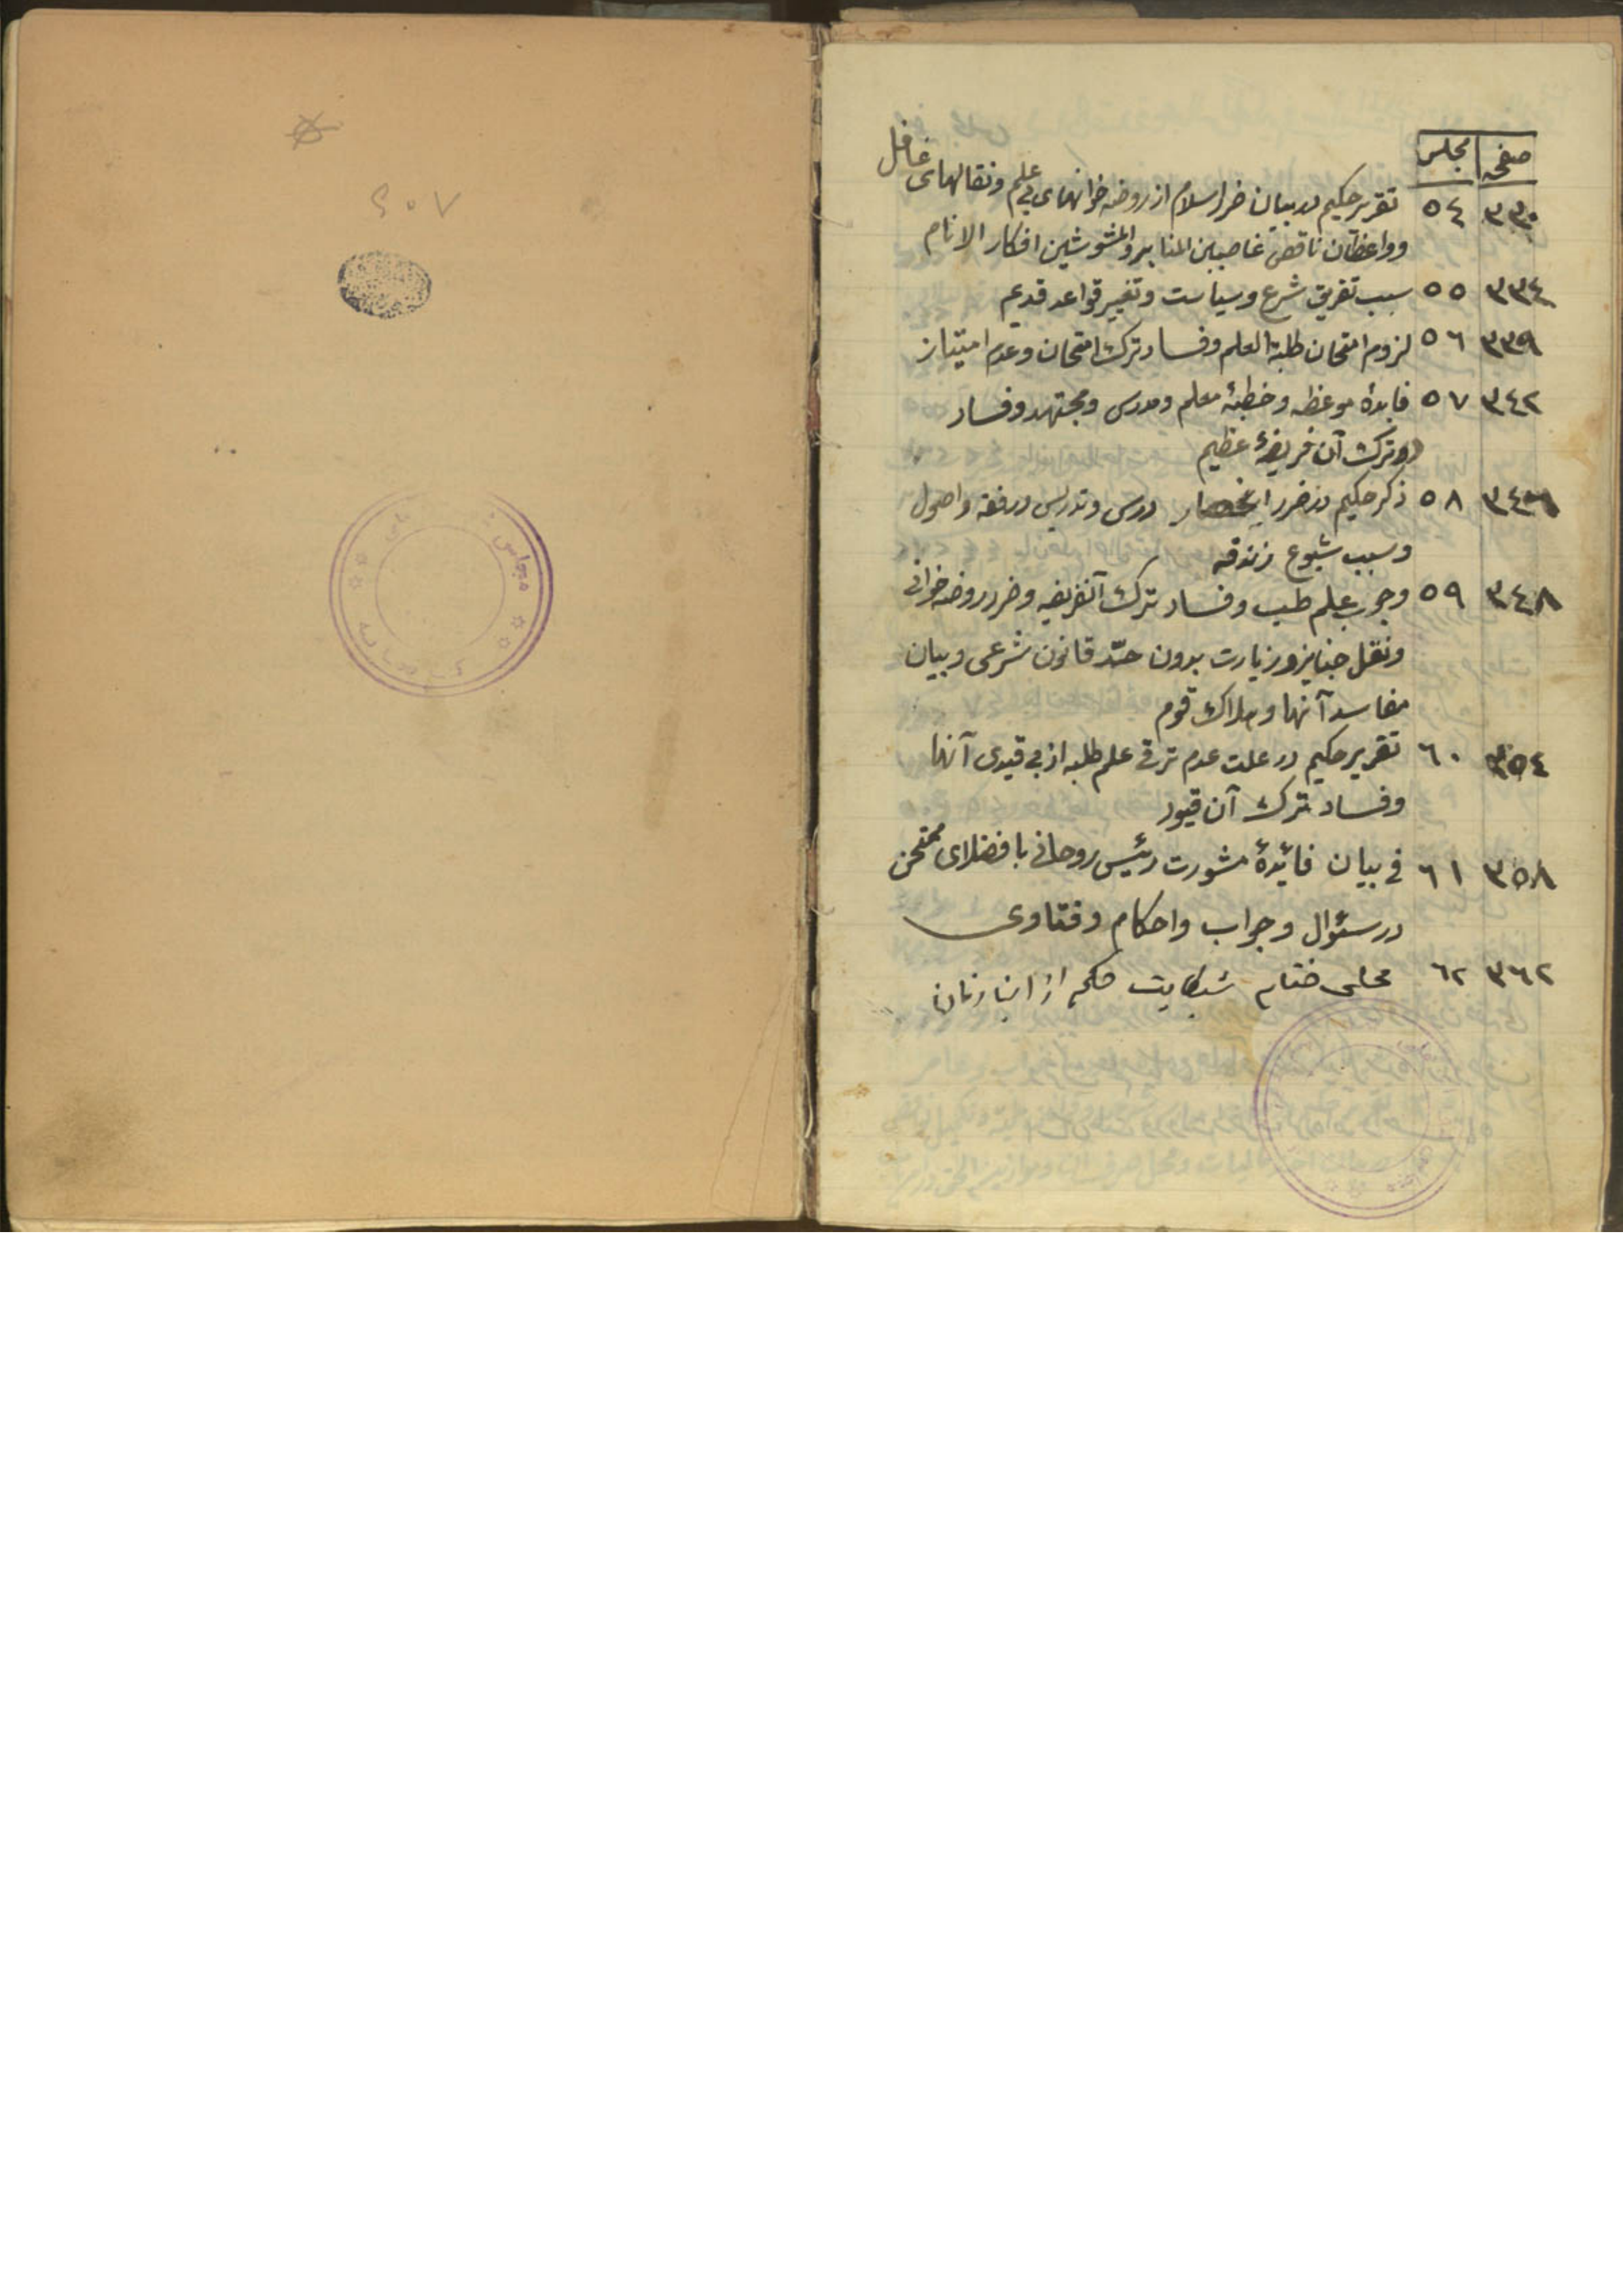 صفحه مجلس
٣٣٠ ٥٤ تقریر حکیم در بیان ضرر اسلام از روضه خوانهای بی علم و نقالهای غافل
و واعظان ناقص غاصبین المنابر و المشوشین افکار الانام
٣٣٤ ٥٥ سبب تفریق شرع و سیاست و تغییر قواعد قدیم
٣٣٩ ٥٦ لزوم امتحان طلبة العلم و فساد ترک امتحان و عدم امتیاز
٣٤٢ ٥٧ فایدهٔ موعظه و خطبهٔ معلم و مدرس و مجتهد و فساد
و ترک آن فریضهٔ عظیم
٥٨ ذکر حکیم در ضرر انحصار درس و تدریس در فقه و اصول
و سبب شیوع زندقه
٣٤٨ ٥٩ وجوب علم طب و فساد ترک آنفریضه و ضرر روضه خوانی
و نقل جنایز و زیارت بدون حدّ قانون شرعی و بیان
مفاسد آنها و هلاک قوم
٣٥٤ ٦٠ تقریر حکیم در علت عدم ترقی علم طلبه از بی قیدی آنها
و فساد ترک آن قیود
٣٥٨ ٦١ فی بیان فائدهٔ مشورت رئیس روحانی با فضلای ممتحن
در سئوال و جواب و احکام و فتاوی
٣٦٢ ٦٢ مجلس ختام شکایت حکیم از ابناء زمان
٦٠٧
مجلس